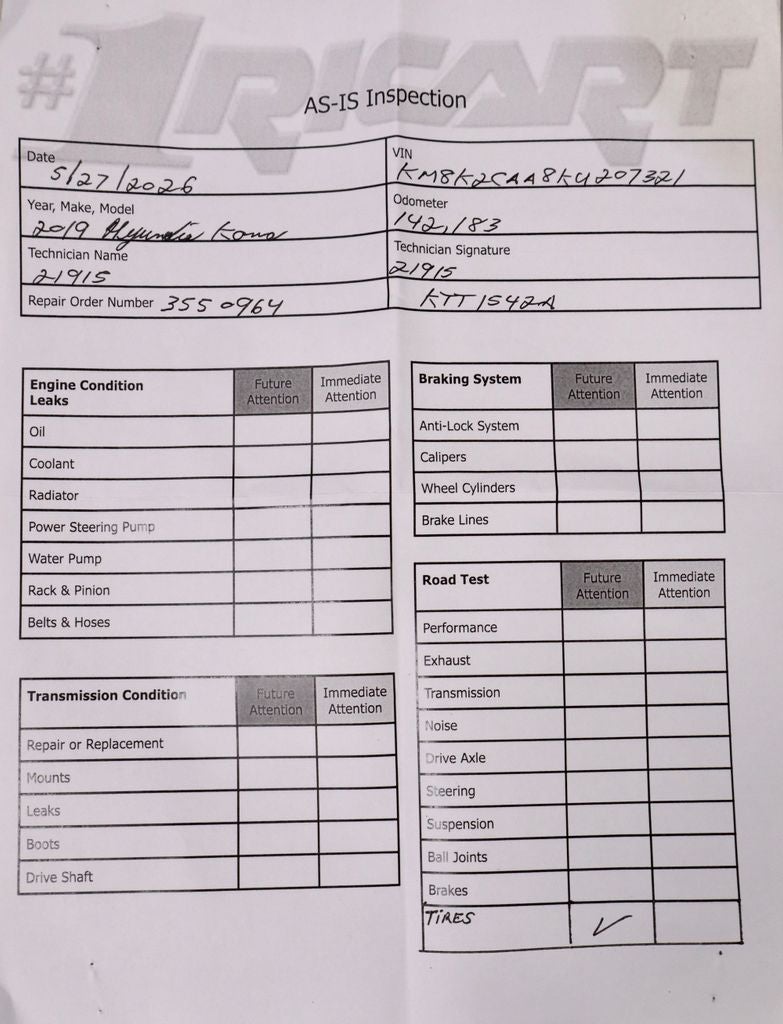 #1 RICART
AS-IS Inspection
Date 5/27/2026
VIN KM8K2CAA8KU207321
Year, Make, Model 2019 Hyundai Kona
Odometer 142,183
Technician Name 21915
Technician Signature 21915
Repair Order Number 3550964
KTT1542A
Engine Condition Leaks Future Attention Immediate Attention
Oil
Coolant
Radiator
Power Steering Pump
Water Pump
Rack & Pinion
Belts & Hoses
Transmission Condition Future Attention Immediate Attention
Repair or Replacement
Mounts
Leaks
Boots
Drive Shaft
Braking System Future Attention Immediate Attention
Anti-Lock System
Calipers
Wheel Cylinders
Brake Lines
Road Test Future Attention Immediate Attention
Performance
Exhaust
Transmission
Noise
Drive Axle
Steering
Suspension
Ball Joints
Brakes
TIRES ✓